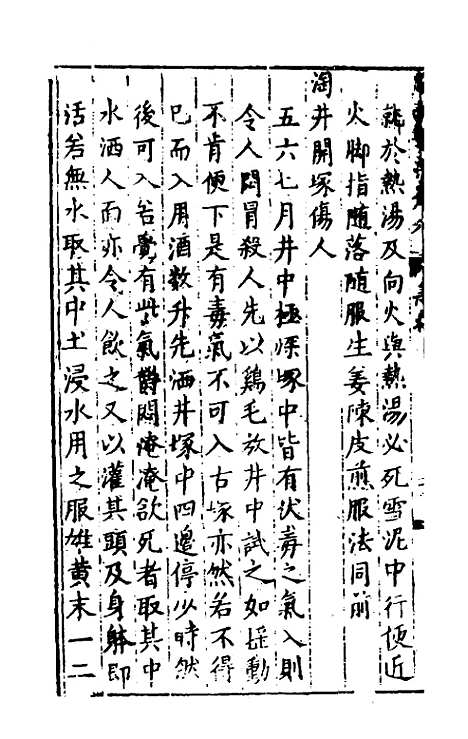 就於熱湯及向火與熱湯必死雪泥中行便近
火脚指随落随服生姜陳皮煎服法同前
淘井開塚傷人
五六七月井中極深塚中皆有伏毒之氣入則
令人悶冒殺人先以鷄毛放井中試之如揺動
不肯便下是有毒氣不可入古塚亦然若不得
已而入用酒数升先洒井塚中四邉停少時然
後可入若覺有此氣欝悶淹淹欲死者取其中
水洒人面亦令人飲之又以灌其頭及身躰即
活若無水取其中土浸水用之服雄黄末一二